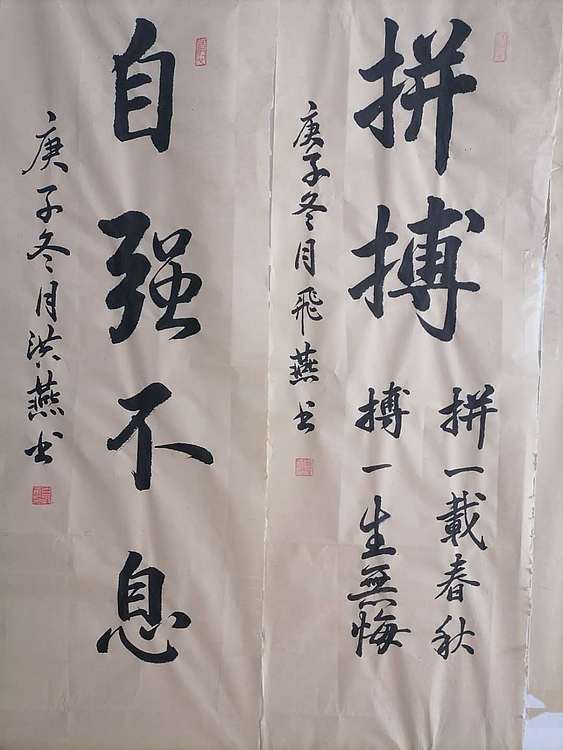 拼搏
拼一載春秋
搏一生無悔
庚子冬月飛燕书
自强不息
庚子冬月洪燕书